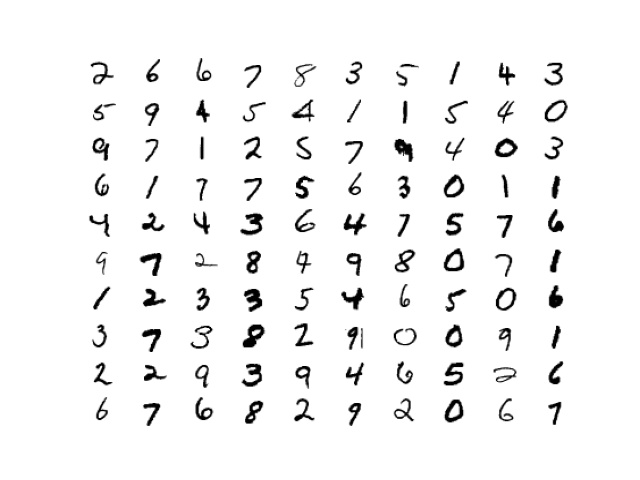 2 6 6 7 8 3 5 1 4 3
5 9 4 5 4 1 1 5 4 0
9 7 1 2 5 7 9 4 0 3
6 1 7 7 5 6 3 0 1 1
4 2 4 3 6 4 7 5 7 6
9 7 2 8 4 9 8 0 7 1
1 2 3 3 5 4 6 5 0 6
3 7 3 8 2 9 0 0 9 1
2 2 9 3 9 4 6 5 2 6
6 7 6 8 2 9 2 0 6 7